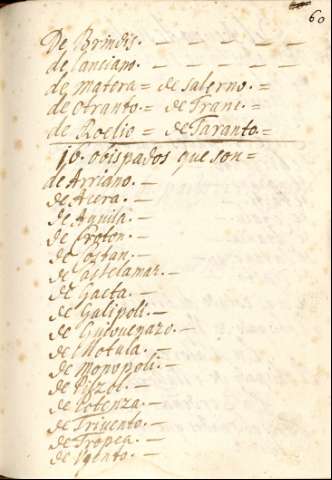 60
De Brindis. — — — — —
de Lanciano. — — — — —
de Matera = de Salerno. =
de Otranto. = de Trani. =
de Roclio = de Taranto. =
16. obispados que son =
de Arriano. —
de Acera. —
de Aquila. —
de Croton. —
de —
de Castelamar. —
de Gaeta. —
de Galipoli. —
de —
de Motula. —
de Monopoli. —
de —
de Potenza. —
de Trivento. —
de Tropea. —
de —